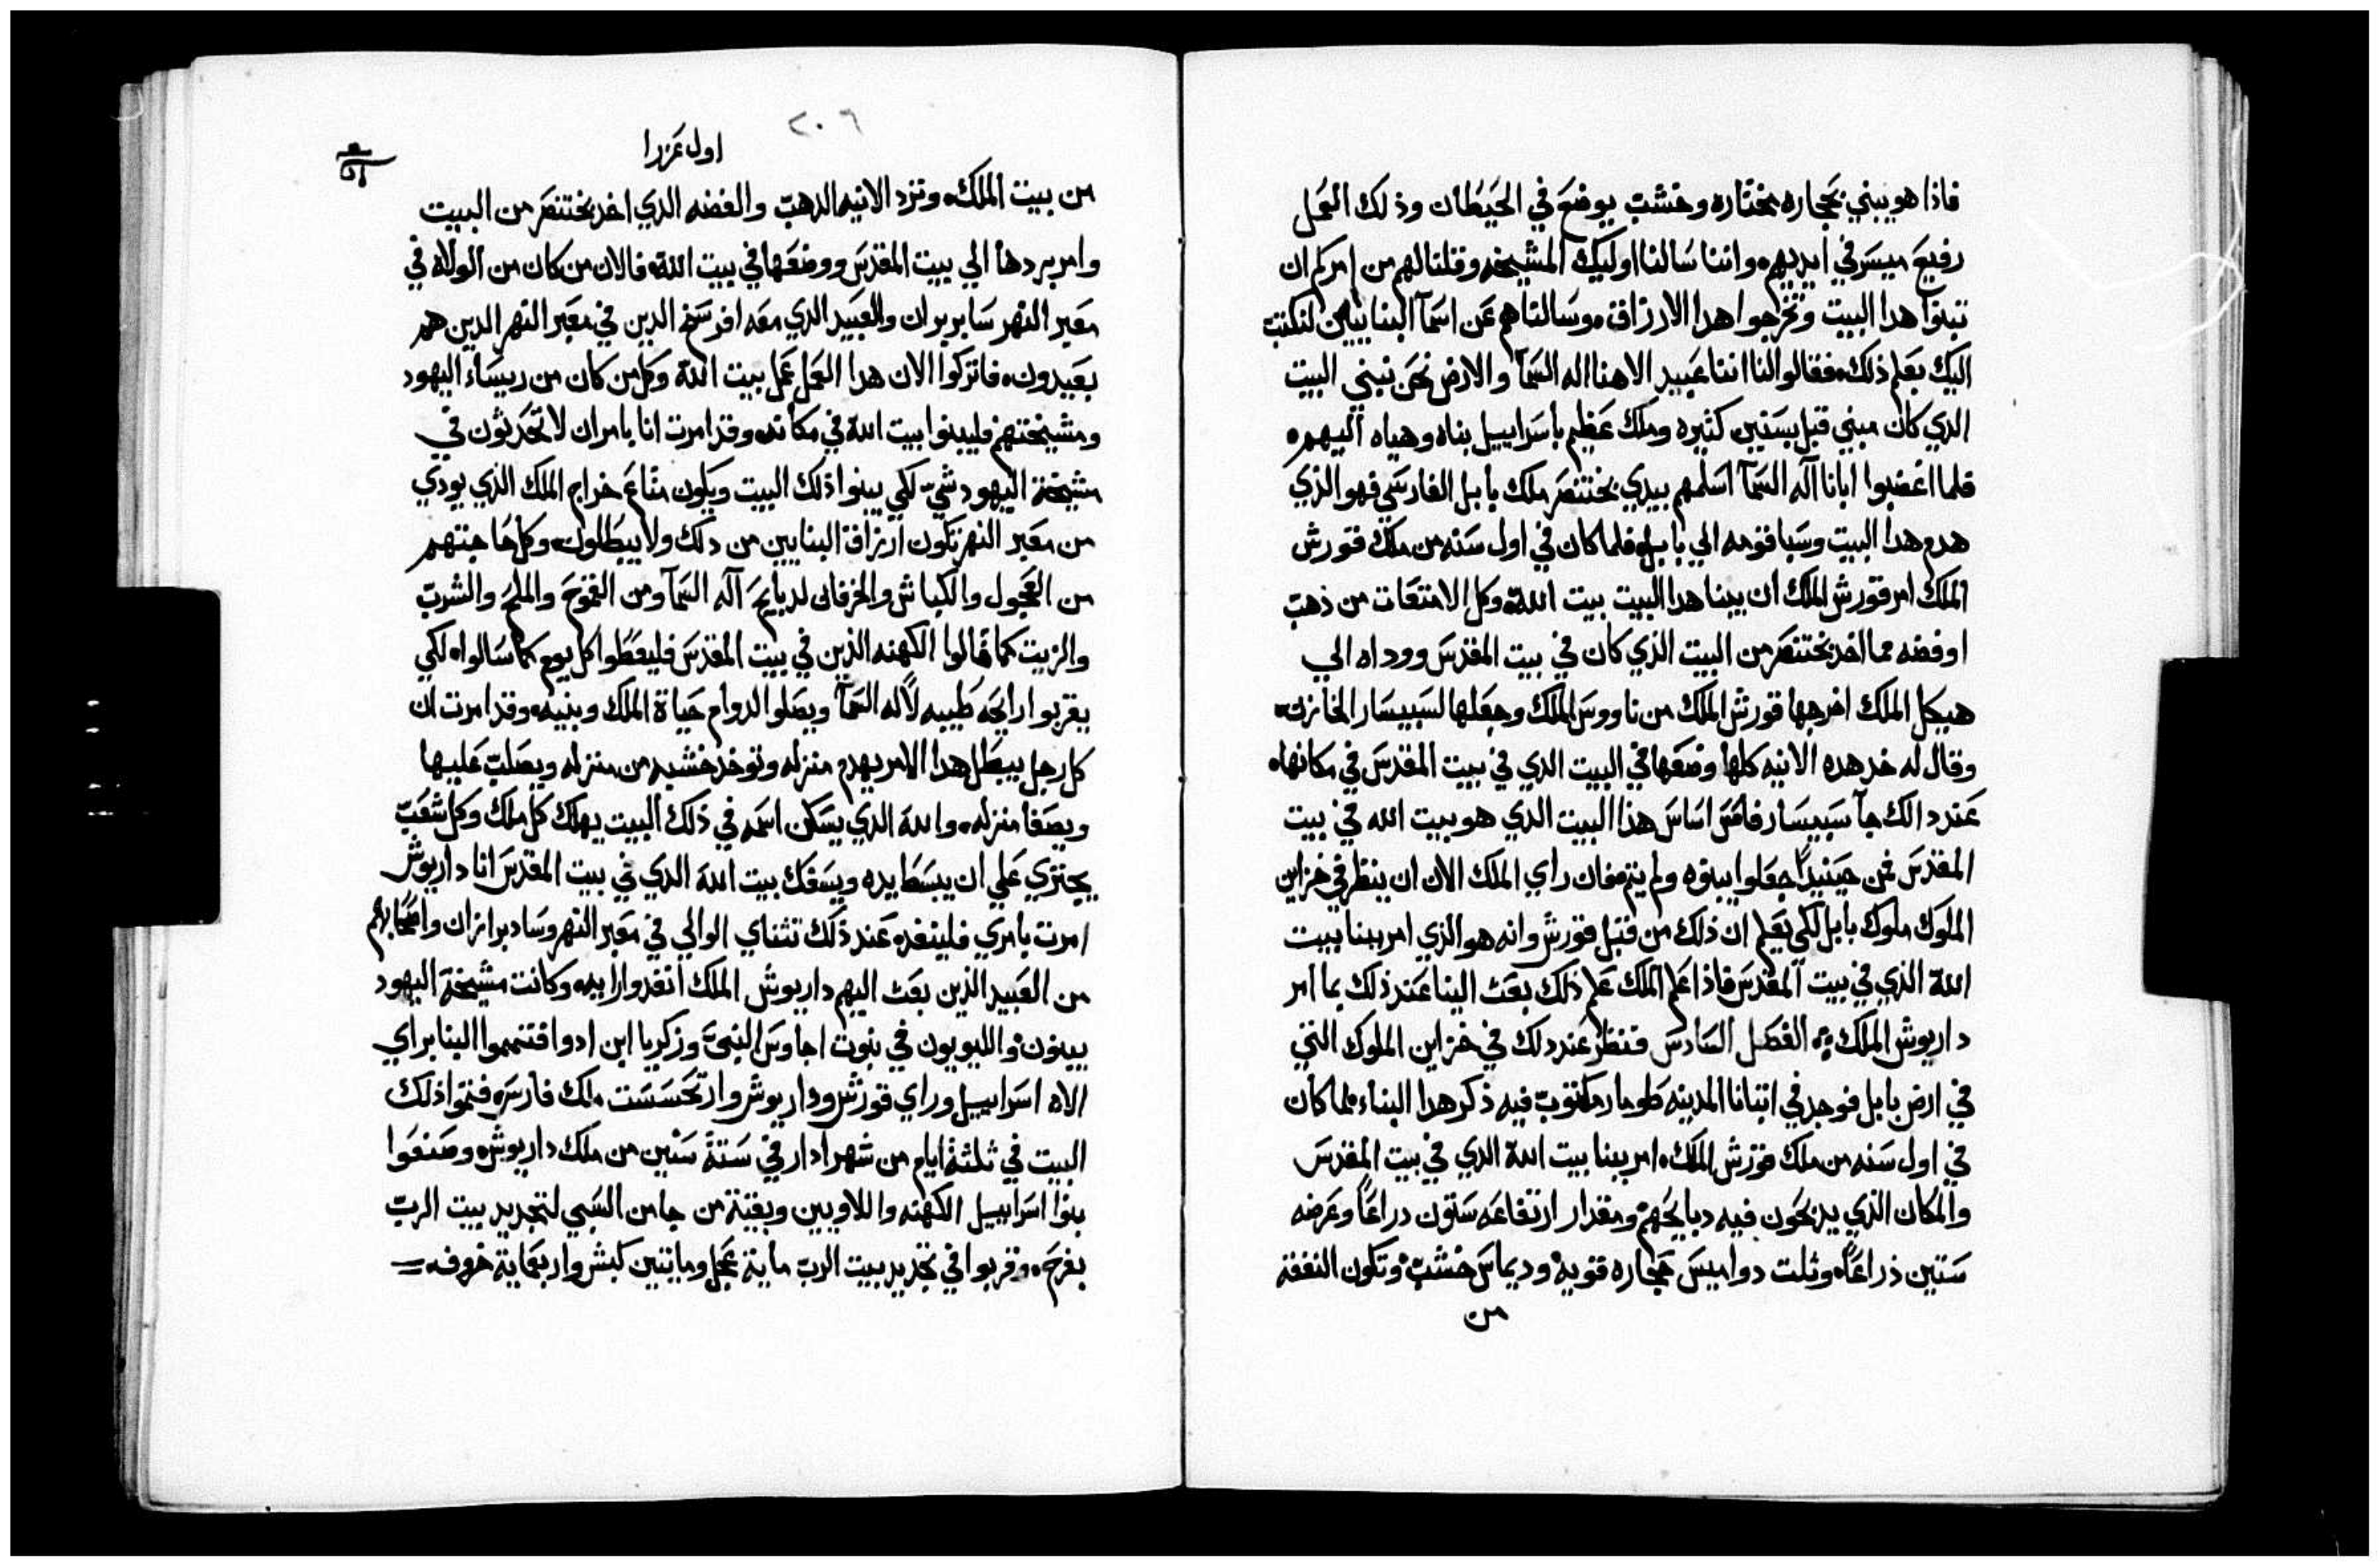 فاذا هو يبني بحجاره مختاره وخشب يوضع في الحيطان وذلك العمل
رفيع ميسر في ايديهم، واننا سالنا اوليك المشيخه وقلنا لهم من امركم ان
تبنوا هدا البيت وتخرجوا هدا الارزاق، وسالناهم عن اسمآ البنايين لنكتب
اليك بعلم ذلك، فقالوا لنا اننا عبيد الاهنا اله السمآ والارض نحن نبني البيت
الدي كان مبني قبل بسنين كثيره وملك عظيم باسراييل بناه وهياه اليهم،
فلما اغضبوا ابانا اله السمآ اسلمهم بيدي بختنصر ملك بابل الفارسي فهو الذي
هدم هدا البيت وسبا قومه الي بابل، فلما كان في اول سنه من ملك قورش
الملك امر قورش الملك ان يبنا هدا البيت بيت الله، وكل الامتعات من ذهب
اوفضه مما اخد بختنصر من البيت الذي كان في بيت المقدس ووداه الي
هيكل الملك اخرجها قورش الملك من ناووس الملك وجعلها لسبيسار الخازن،
وقال له خد هده الانيه كلها وضعها في البيت الدي في بيت المقدس في مكانها،
عند دالك جآ سبيسار فاسس اساس هذا البيت الدي هو بيت الله في بيت
المقدس فمن حينيدًا جعلوا يبنوه ولم يتم، فان راي الملك الان ان ينظر في خزاين
الملوك ملوك بابل لكي يعلم ان ذلك من قبل قورش وانه هو الذي امر ببنا بيت
الله الذي في بيت المقدس فاذا علم الملك علم ذلك بعث الينا عند ذلك بما امر
داريوش الملك، الفصل السادس فنظر عند دلك في خزاين الملوك التي
في ارض بابل فوجد في اتبانا المدينه طومار مكتوب فيه ذكر هدا البناء، لما كان
في اول سنه من ملك قورش الملك، امر ببنا بيت الله الدي في بيت المقدس
والمكان الذي يدبحون فيه دبايحهم، ومقدار ارتفاعه ستون دراعًا وعرضه
ستين ذراعًا، وثلت دواميس حجاره قويه، وديماس خشب، وتكون النفقه
من
٢٠٦
اول عزرا
من بيت الملك، وترد الانيه الدهب والفضه الدي اخد بختنصر من البيت
وامر بردها الي بيت المقدس ووضعها في بيت الله، فالان من كان من الولاه في
معبر النهر سابربران والعبيد الدي معه افرسخ الدين في معبر النهر الدين هم
بعيدون، فاتركوا الان هدا العمل عمل بيت الله وكل من كان من ريساء اليهود
ومشيختهم فليبنوا بيت الله في مكانه، وقد امرت انا بامر ان لا تحدثون في
مشيخة اليهود شي لكي يبنوا ذلك البيت ويكون متاع خراج الملك الذي يودي
من معبر النهر تكون ارزاق البنايين من دلك ولا يبطلون، وكل حاجتهم
من العجول والكباش والخرفان لدبايح اله السمآ ومن القموح والملح والشرب
والزيت كما قالوا الكهنه الذين في بيت المقدس فليعطوا كل يوم كما سالوا، لكي
يقربوا رايحه طيبه لاله السمآ ويصلوا لدوام حياة الملك وبنيه، وقد امرت ان
كل رجل يبطل هدا الامر يهدم منزله وتوخد خشبه من منزله ويصلب عليها
ويصفا منزله، والله الدي يسكن اسمه في ذلك البيت يهلك كل ملك وكل شعب
يجتري علي ان يبسط ايده ويسفك بيت الله الدي في بيت المقدس انا داريوش
امرت بامري فلينفد، عند ذلك تثناي الوالي في معبر النهر وسادبرازان واصحابهم
من العبيد الذين بعث اليهم داريوش الملك انفدوا رايه، وكانت مشيخة اليهود
يبنون والليويون في نبوت اجاوس النبي وزكريا ابن ادوا فتمموا البنا براي
الاه اسراييل وراي قورش وداريوش وارتحسست ملك فارس، فتموا ذلك
البيت في ثلثة ايام من شهر ادار في ستة سنين من ملك داريوش، وصنعوا
بنوا اسراييل الكهنه واللاويين وبقية من جا من السبي لتجديد بيت الرب
بفرح، وقربوا في تجديد بيت الرب ماية عجل وماتين كبش واربعماية خروف،